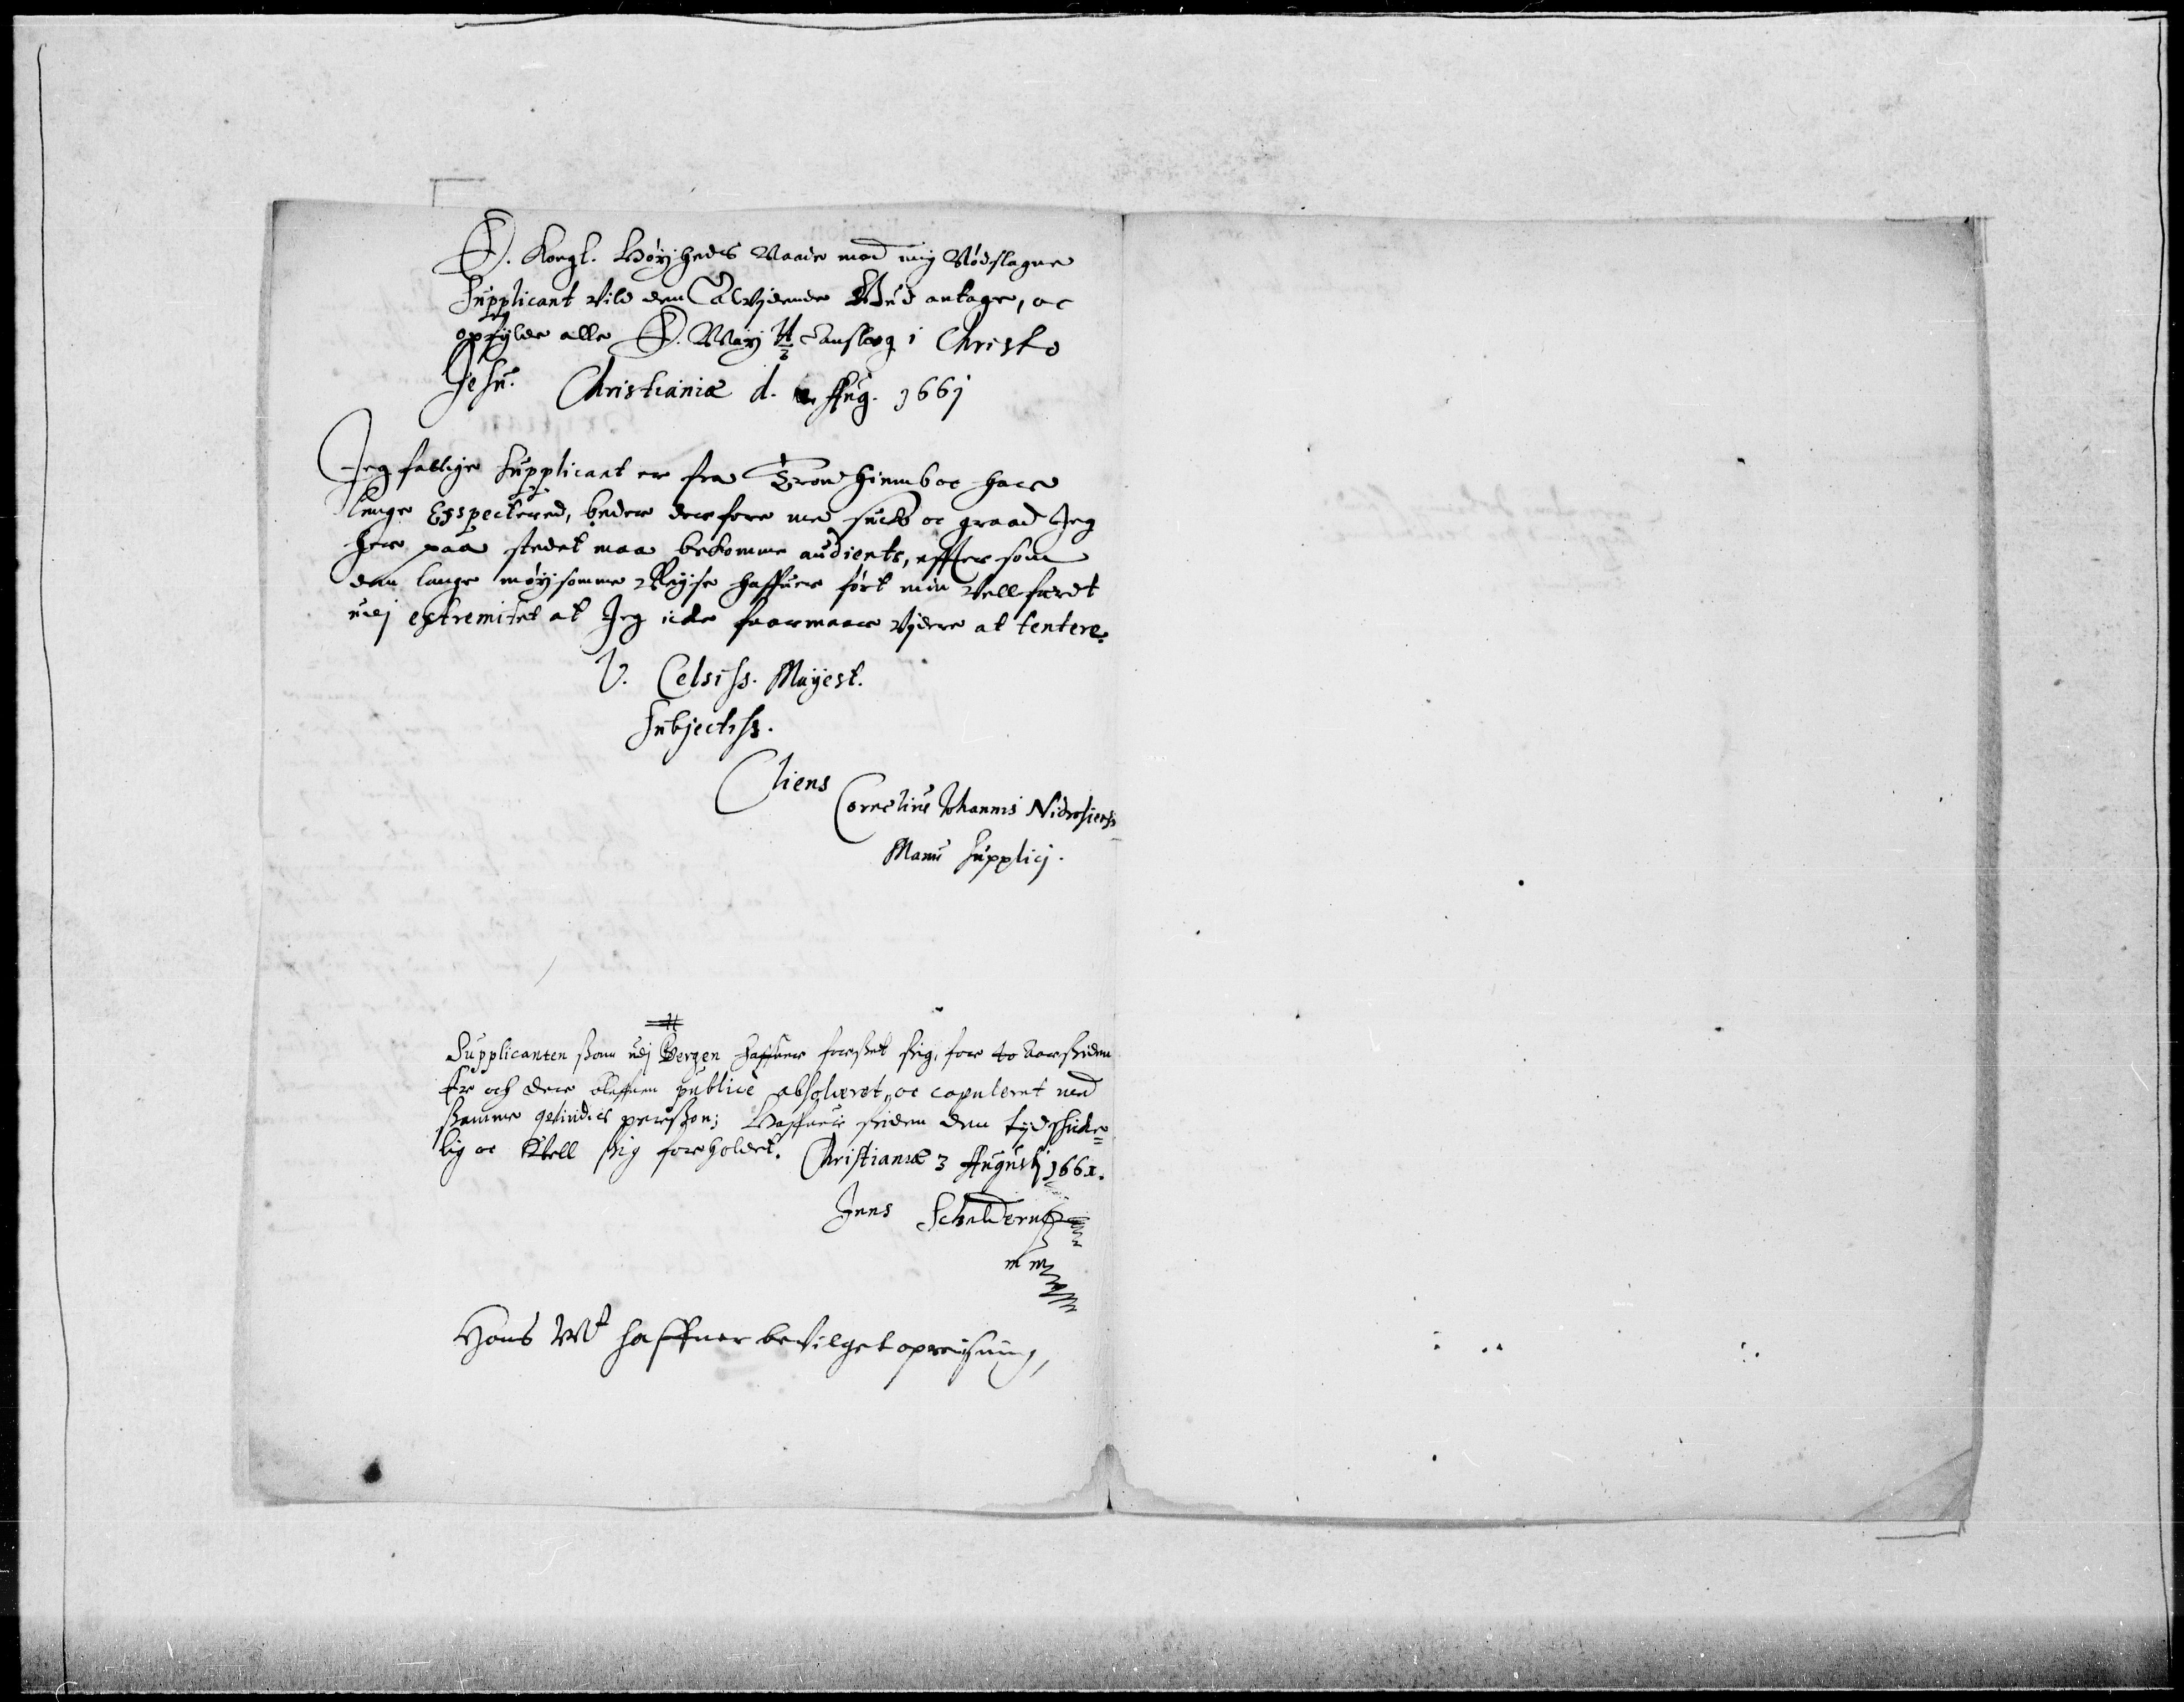 E. Kongl. Høyheds Naade mod mig Nødslagne
Supplicant vild den Alvidende Gud antage, oc
opfylde alle E. May: anslag i Christo
Jesu. Christianiæ d. Aug. 1661
Jeg fattige Supplicant er fra Trondhiemb oc hafr
lenge Exspectered, beder derfore med suck oc graad Jeg
her paa stedet maa bekomme audients, effter som
den lange møysomme Reyse haffuer ført min Vellfærdt
udj extremitet at Jeg icke foormaar vijdere at tentere.
V. Celsiss. Mayest.
Subjectiss.
Cliens
Cornelius Johannis Nidrosiens
Manu Supplicj.
Supplicanten ßom udj Bergen haffuer forßet ßig, for to Aar ßiden
er och der bleffuen publicè absolveret, oc copuleret med
ßamme qvindis perßon; Haffuer ßiden den tijd skicke=
lig oc Vell ßig forholdet. Christianiæ 3 Augustj 1661.
Jens Schelderup
mm
Hans Mt haffuer bevilget opreisning,